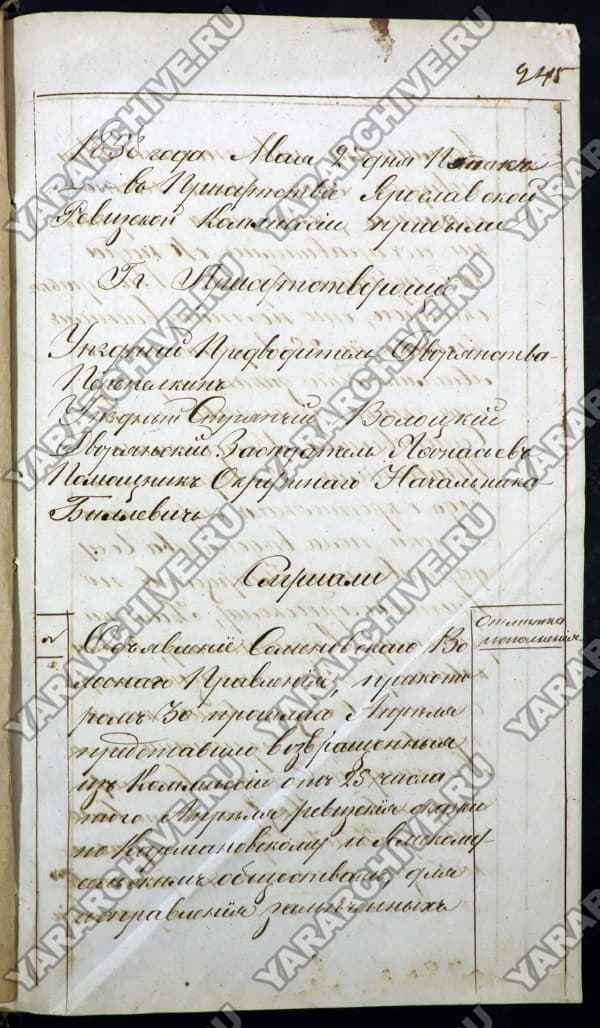 245
1858 года Мая 2 дня Пятокъ
въ Присутствіе Ярославской
Ревизской Коммиссіи прибыли
Г.г. Присутствующіе
Уѣздный Предводитель Дворянства
Перепелкинъ
Уѣздный Стряпчій Волоцкій
Дворянскій Засѣдатель Афонасьевъ
Помощникъ Окружнаго Начальника
Быллевичь
Слушали
2
Отмѣтка
исполненія
Объявленіе Семеновскаго Во
лоснаго Правленія, прикото
ромъ 30 прошлаго Апрѣля
представило возвращенныя
изъ Коммиссіи отъ 25 числа
того Апрѣля ревизскія сказки
по Кармановскому и Ямскому
сельскимъ обществамъ, для
исправленія замѣченныхъ
YARARCHIVE.RU